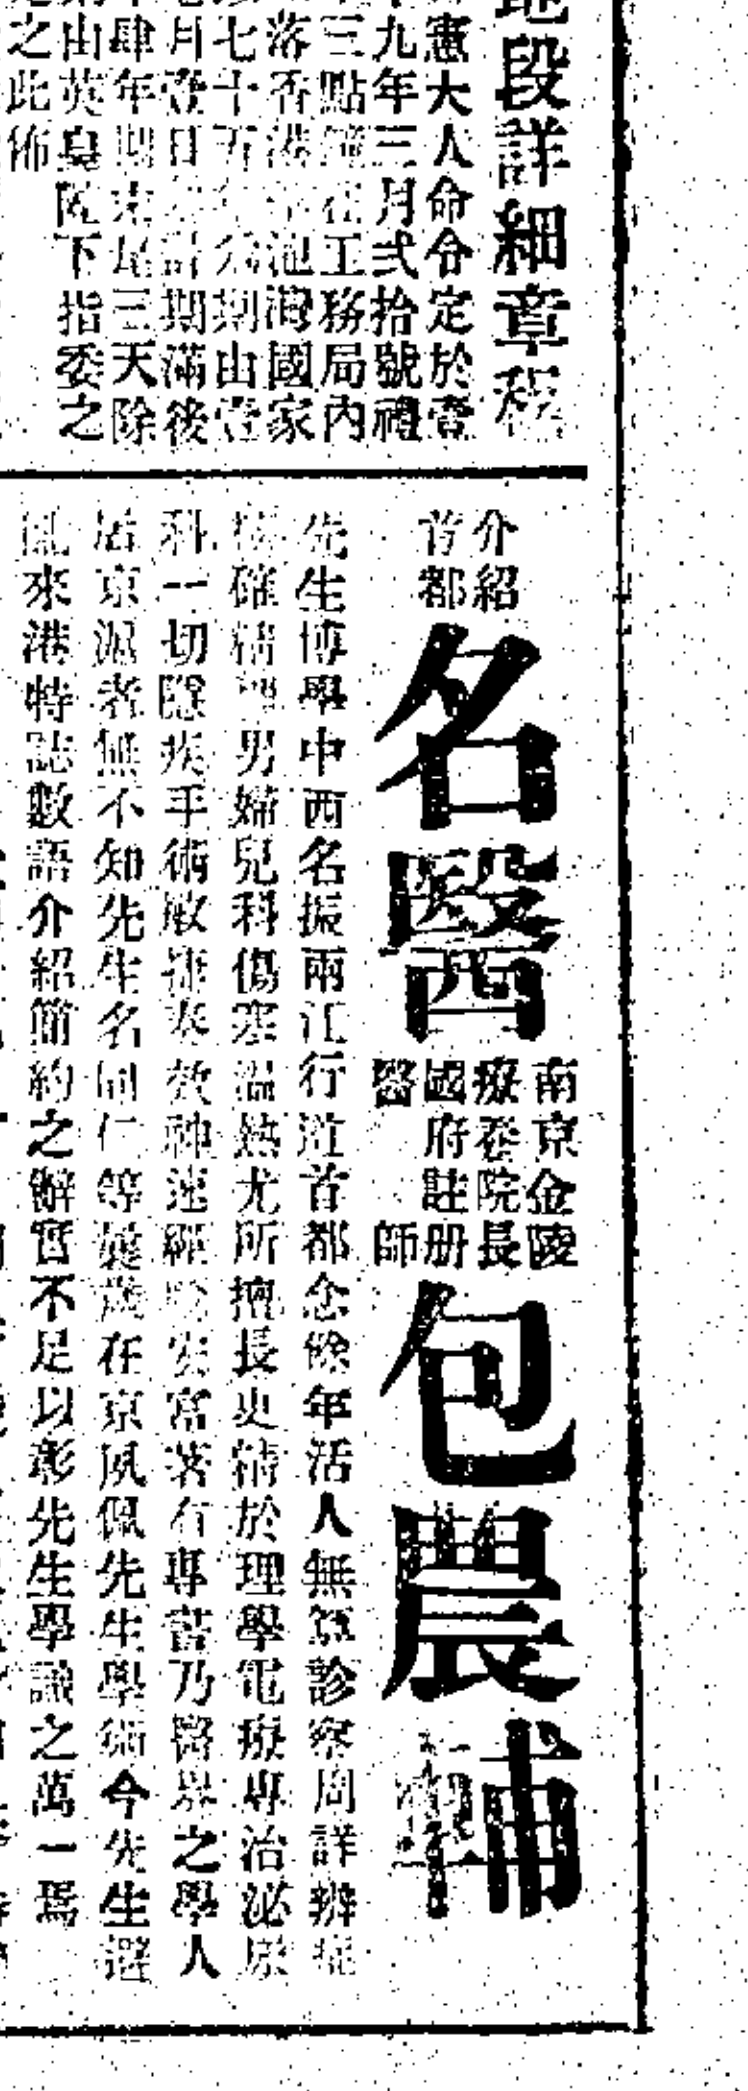 地段詳細章程
憲大人命令定於壹
九年三月弍拾號禮
三點鐘在工務局內
落香港 池灣國家
七十五年 期由壹
月壹日 計期滿後
肆年期末尾三天除
由英皇陛下指委之
之此佈
介紹
首都
名醫
南京金陵
療養院長
國府註册
醫師
包農輔
先生博學中西名振兩江行道首都念餘年活人無算診察周詳辦症
確精 男婦兒科傷寒溫熱尤所擅長更精於理學電療專治泌尿
科一切隱疾手術敏捷奏效神速經驗宏富著有專書乃醫界之學人
居京滬者無不知先生名同仁等 在京夙佩先生學術今先生避
亂來港特誌數語介紹簡約之辭實不足以彰先生學識之萬一焉